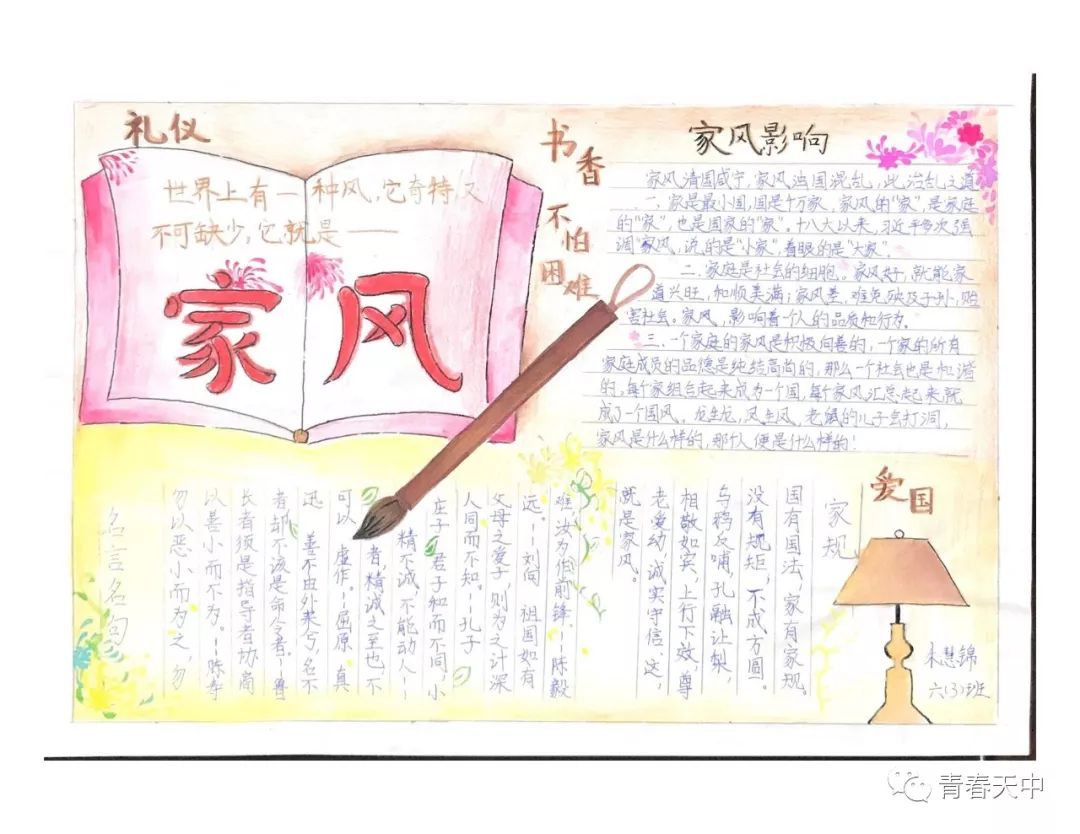 礼仪
世界上有一种风,它奇特,又
不可缺少,它就是——
家风
书香
不怕
困难
家风影响
家风清国咸宁,家风浊国混乱,此治乱之道
一、家是最小国,国是千万家,家风的“家”是家庭
的“家”,也是国家的“家”。十八大以来,习近平多次强
调“家风,说的是“小家”,着眼的是“大家”。
二、家庭是社会的细胞。家风好,就能家
道兴旺,和顺美满;家风差,难免殃及子孙,贻
害社会。家风,影响着一个人的品质和行为。
三、一个家庭的家风是积极向善的,一个家的所有
家庭成员的品德是纯结高尚的,那么一个社会也是和谐
的。每个家组合起来成为一个国,每个家风汇总起来就
成了一个国风。龙生龙,凤生凤,老鼠的儿子会打洞,
家风是什么样的,那个人便是什么样的!
名言名句
勿以恶小而为之,勿
以善小而不为。--陈寿
长者须是指导者协商
者却不该是命令者。--鲁
迅 善不由外来兮,名不
可以 虚作。--屈原 真
者,精诚之至也,不
精不诚,不能动人--
庄子 君子和而不同,小
人同而不知。--孔子
父母之爱子,则为之计深
远。--刘向 祖国如有
难汝为但前锋--陈毅
家规
国有国法,家有家规。
没有规矩,不成方圆。
乌鸦反哺,孔融让梨,
相敬如宾,上行下效,尊
老爱幼,诚实守信。这,
就是家风。
爱国
慧锦
六(3)班
青春天中